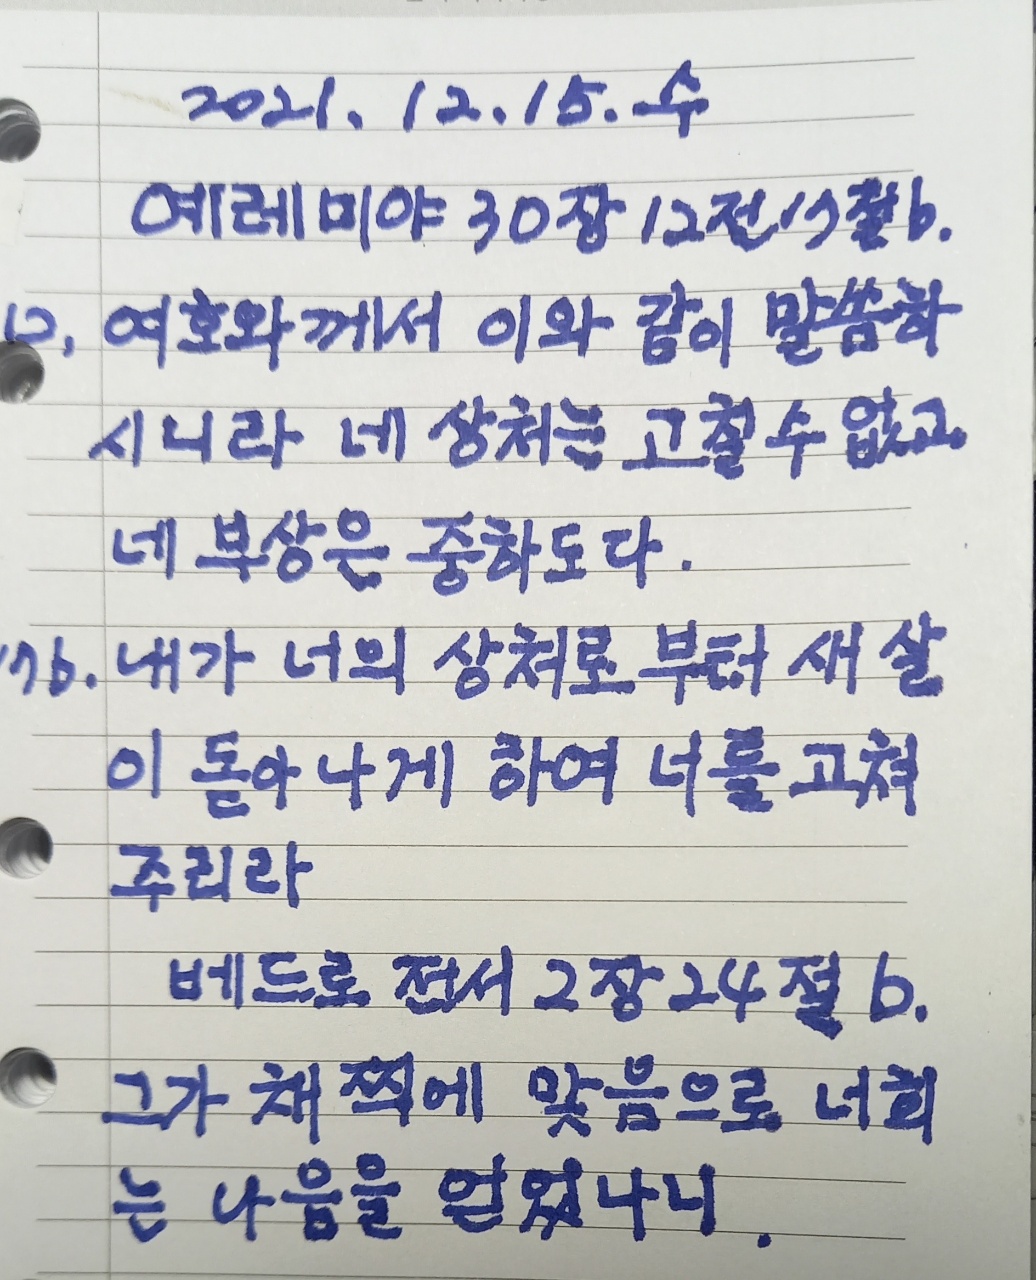 2021. 12. 15. 수
예레미야 30장 12전, 17절 b.
12. 여호와께서 이와 같이 말씀하
시니라 네 상처는 고칠 수 없고
네 부상은 중하도다.
17b. 내가 너의 상처로부터 새 살
이 돋아나게 하여 너를 고쳐
주리라
베드로 전서 2장 24절 b.
그가 채찍에 맞음으로 너희
는 나음을 얻었나니.